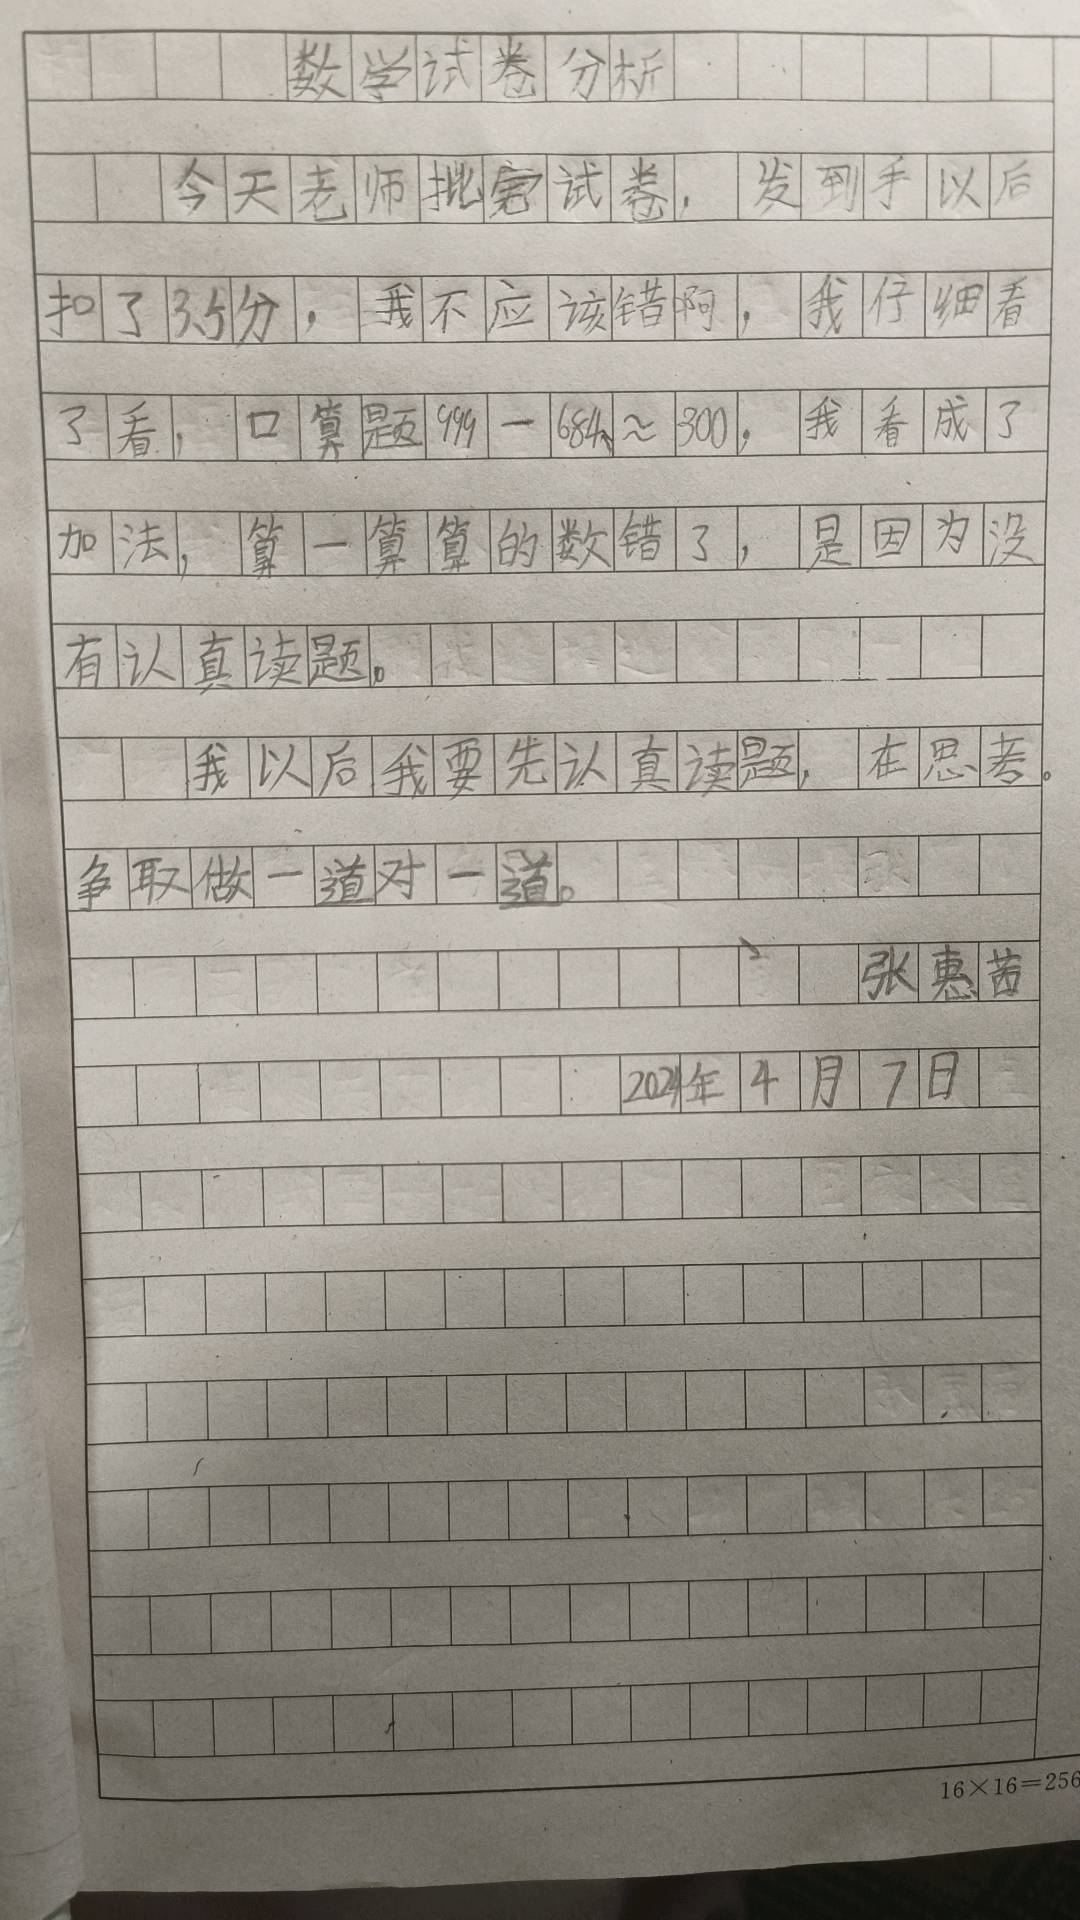 数学试卷分析
今天老师批完试卷，发到手以后
扣了3.5分，我不应该错啊，我仔细看
了看，口算题999－684≈300，我看成了
加法，算一算算的数错了，是因为没
有认真读题。
我以后我要先认真读题，在思考。
争取做一道对一道。
张惠茜
2024年4月7日
16×16＝256